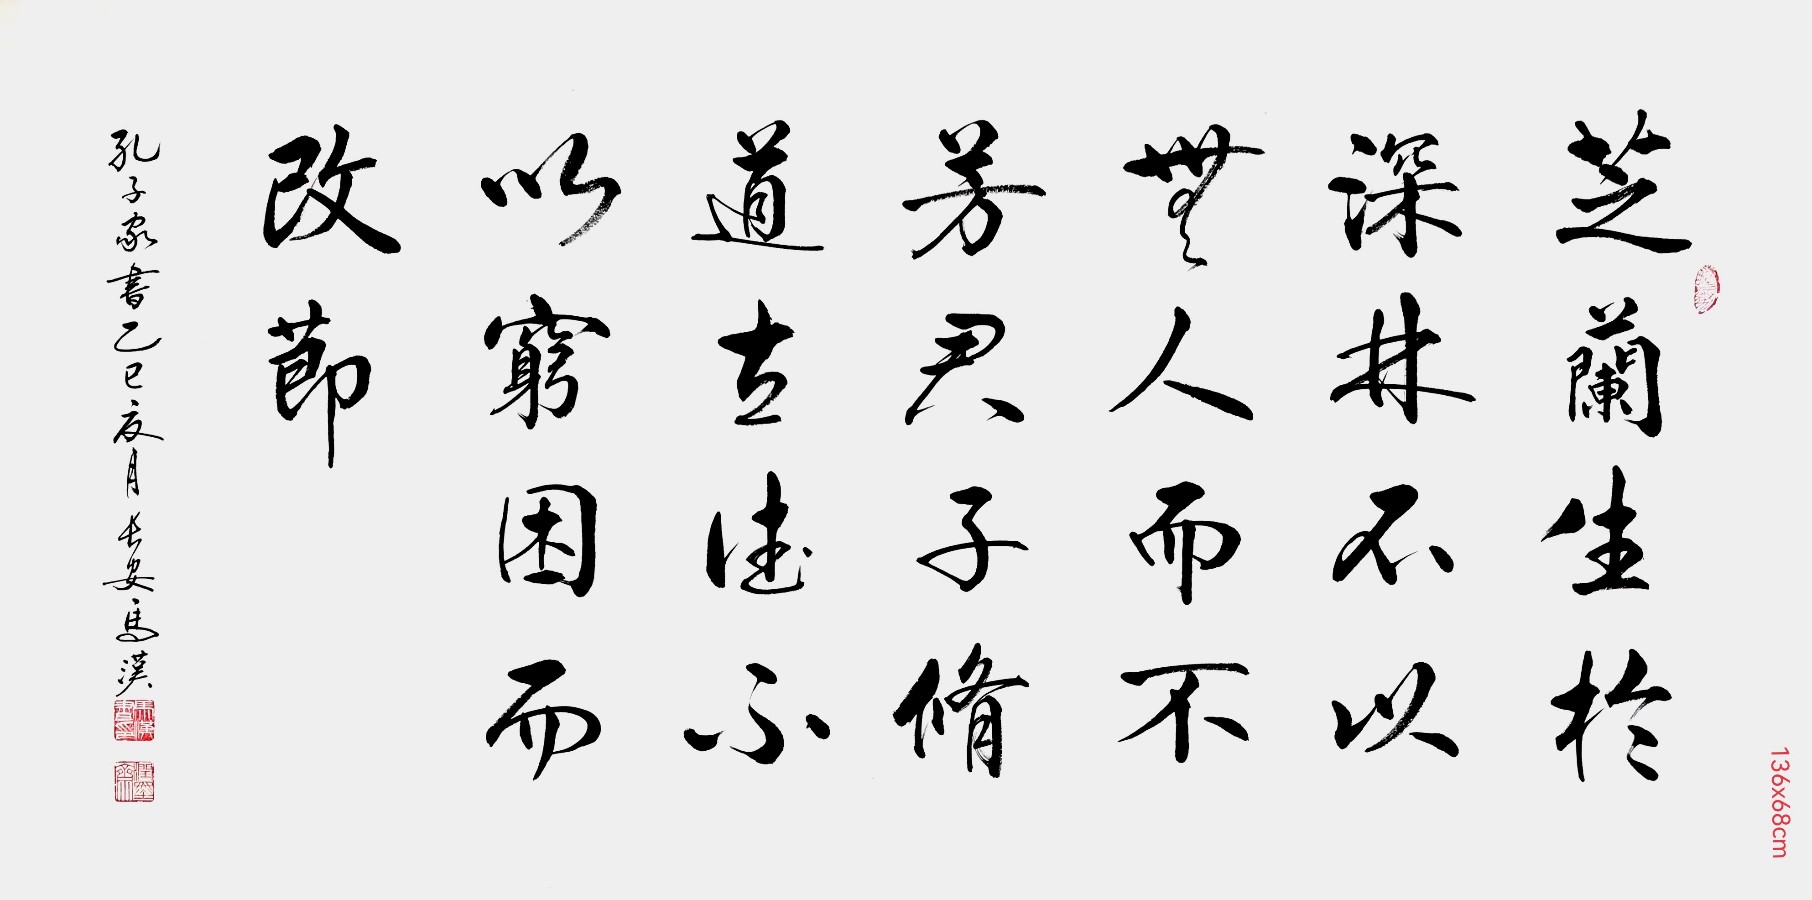 芝蘭生於
深林不以
無人而不
芳君子脩
道立德不
以窮困而
改節
孔子家書乙巳夏月長安馬漢
136x68cm